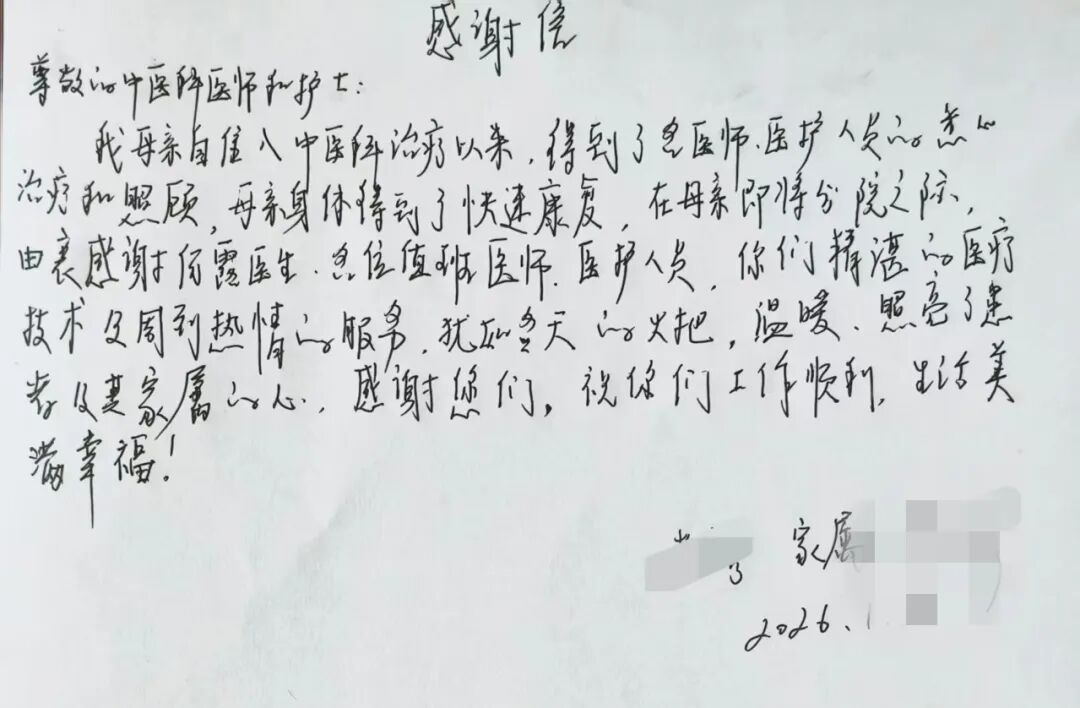 感谢信
尊敬的中医科医师和护士：
我母亲自住入中医科治疗以来，得到了各医师、医护人员的悉心
治疗和照顾，母亲身体得到了快速康复，在母亲即将分院之际，
由衷感谢何露医生、各位值班医师、医护人员，你们精湛的医疗
技术及周到热情的服务，犹如冬天的火把，温暖、照亮了患
者及其家属的心，感谢您们，祝你们工作顺利，生活美
满幸福！
家属
2026.